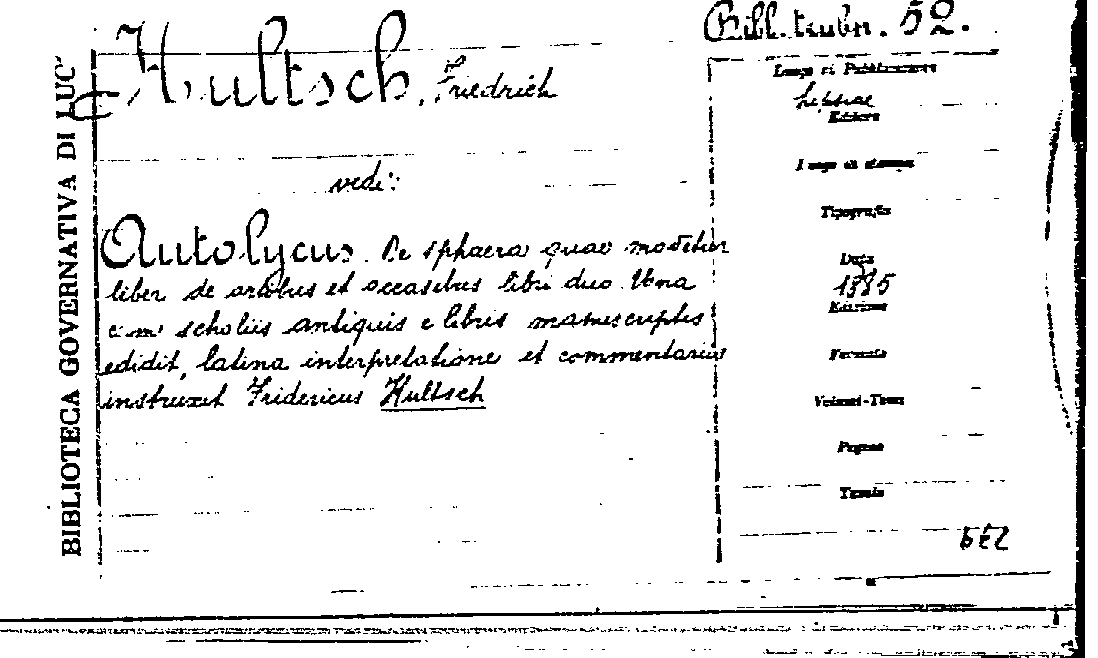 Bibl. teubn. 52.
Hultsch, Friedrich
vedi:
Autolycus. De sphaera quae movetur
liber de ortibus et occasibus libri duo Una
cum scholiis antiquis e libris manuscriptis
edidit, latina interpretatione et commentariis
instruxit Fridericus Hultsch
BIBLIOTECA GOVERNATIVA DI LUC
Luogo di Pubblicazione
Lipsiae
Editore
Luogo di stampa
Tipografia
Data
1885
Edizione
Formato
Volumi-Tomi
Pagine
Tavole